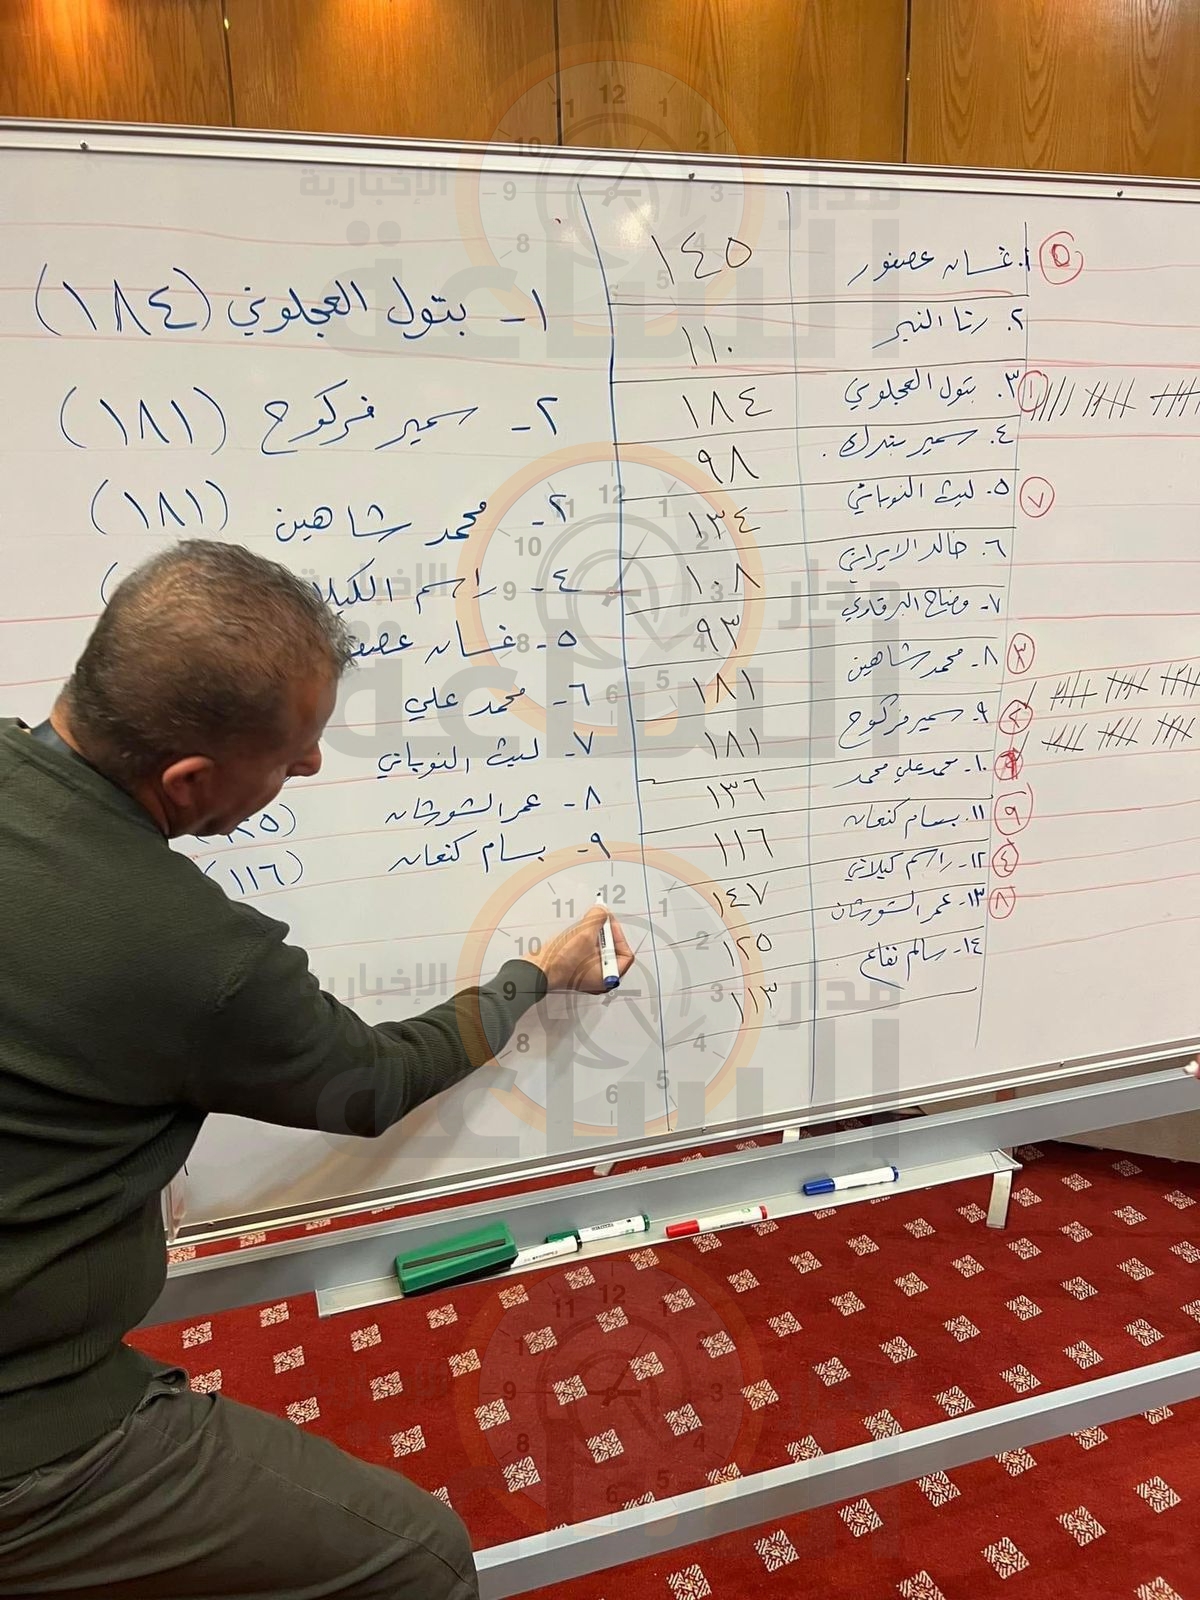 ١. غسان عصفور ١٤٥
٢. رنا النبر ١١٠
٣. بتول العجلوني ١٨٤
٤. سمير بندك ٩٨
٥. ليث النوباني ١٣٤
٦. خالد الايراني ١٠٨
٧- وضاح البرقاوي ٩٣
٨- محمد شاهين ١٨١
٩- سمير فركوح ١٨١
١٠- محمد علي محمد ١٣٦
١١. بسام كنعان ١١٦
١٢- راسم كيلاني ١٤٧
١٣- عمر الشوشان ١٢٥
١٤- سالم نفاع ١١٣
٥
١
٧
٣
٢
٩
٤
٨
١- بتول العجلوني (١٨٤)
٢- سمير فركوح (١٨١)
٢- محمد شاهين (١٨١)
٤- راسم
٥- غسان
٦- محمد علي
٧- ليث النوباني
٨- عمر الشوشان
٩- بسام كنعان (١١٦)
مدار الساعة الإخبارية